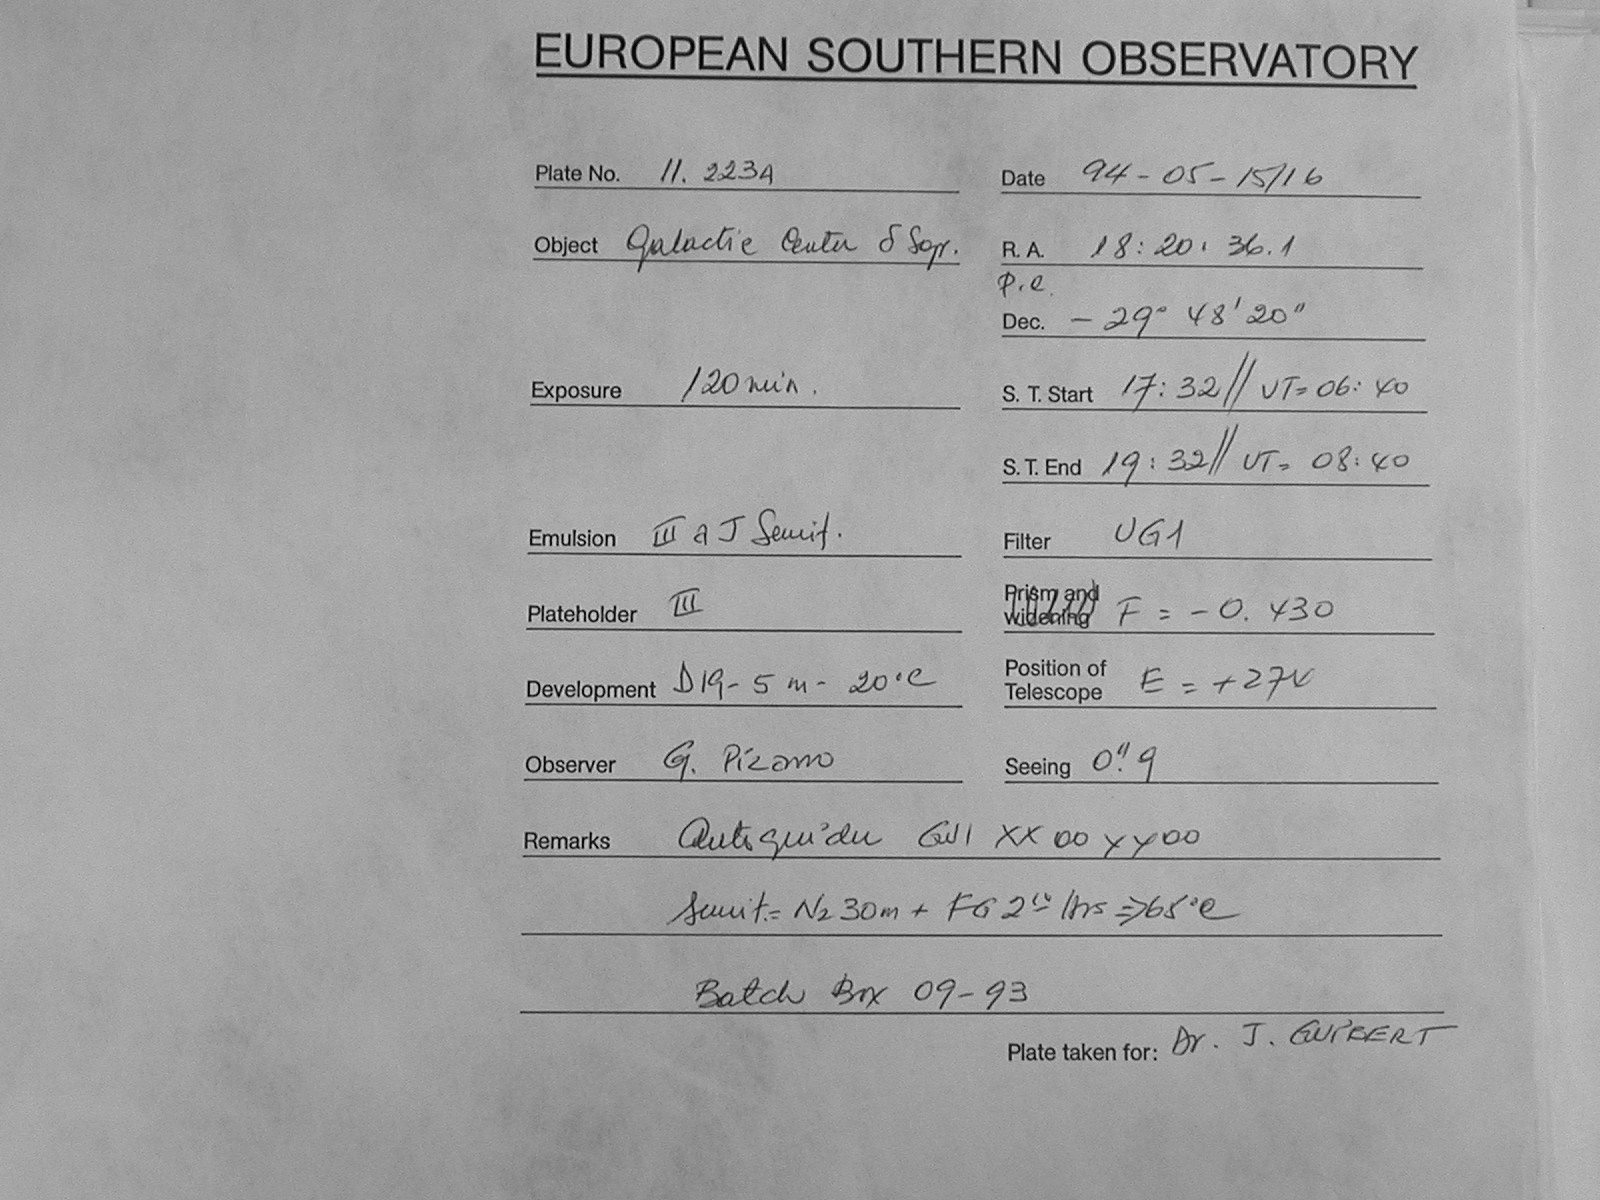 EUROPEAN SOUTHERN OBSERVATORY
Plate No. 11. 2234
Date 94-05-15/16
Object Galactic Center δ Sgr.
R. A. 18: 20: 36.1
p.e.
Dec. - 29° 48' 20"
Exposure 120 min.
S. T. Start 17: 32 // UT= 06: 40
S. T. End 19: 32 // UT= 08: 40
Emulsion III a J Sensit.
Filter UG1
Plateholder III
Prism and widening F = -0. 430
Development D19- 5 m- 20°C
Position of Telescope E = +274
Observer G. Pizarro
Seeing 0".9
Remarks Autoguider XX 00 YY 00
Sensit.= N2 30m + FG hrs => 65°C
Batch Box 09-93
Plate taken for: Dr. J. GUIBERT